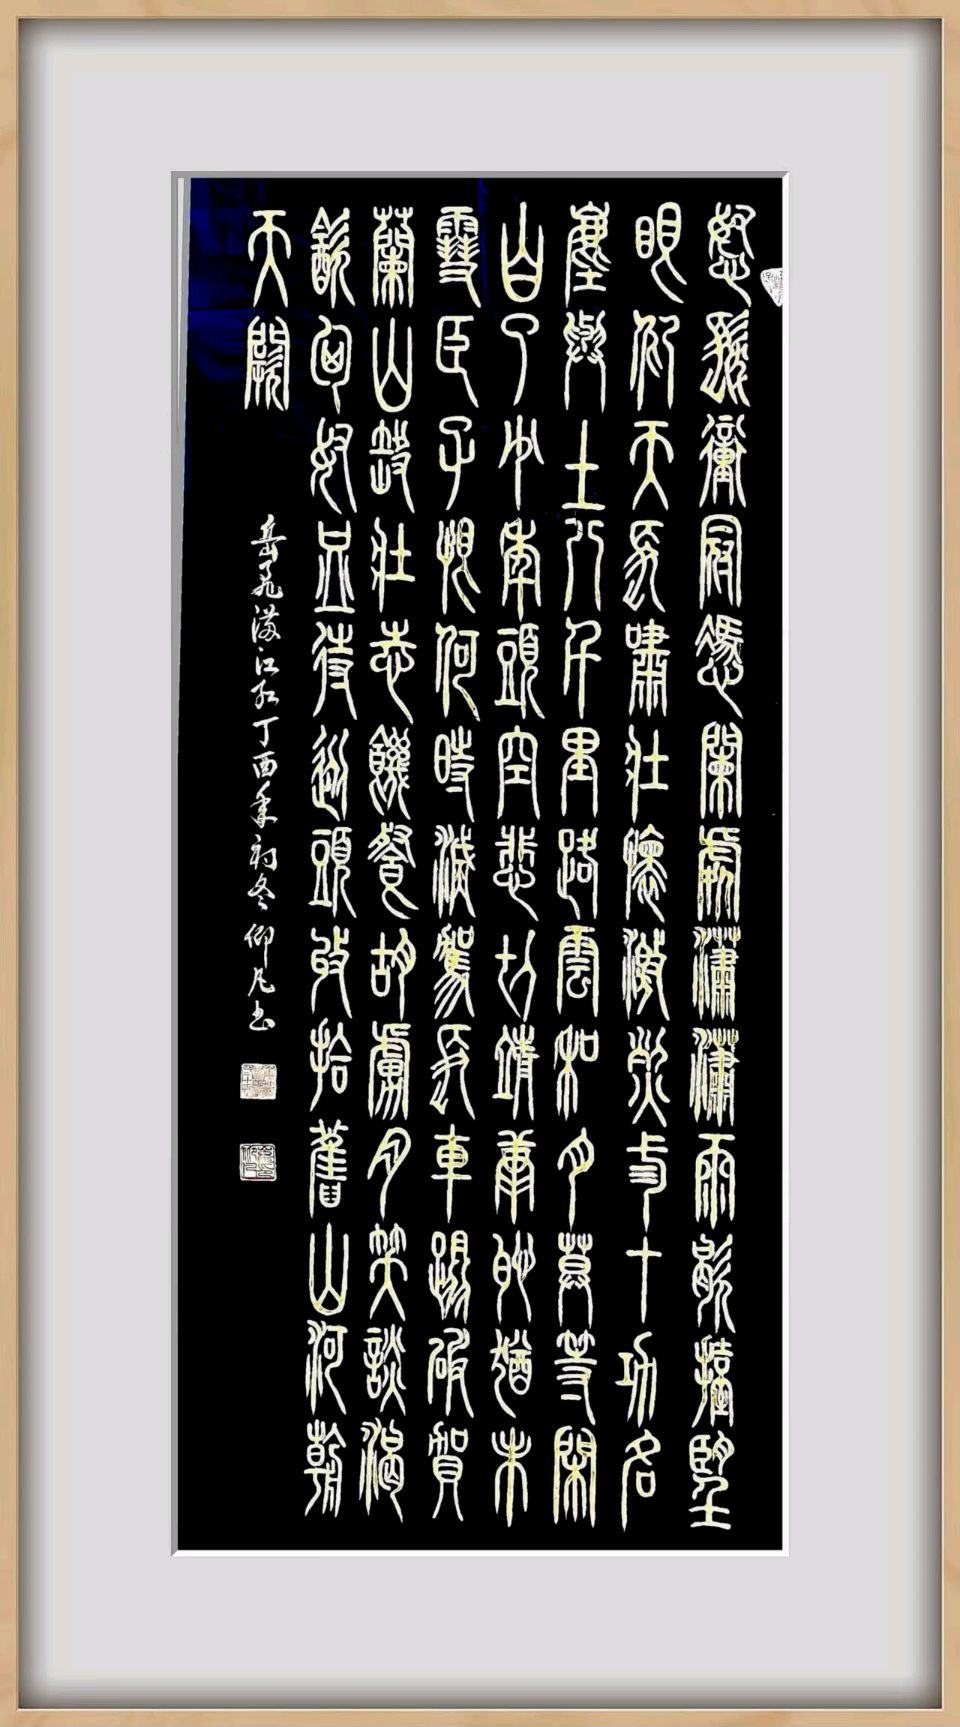 怒髮衝冠憑闌處瀟瀟雨歇擡望
眼仰天長嘯壯懷激烈三十功名
塵與土八千里路雲和月莫等閑
白了少年頭空悲切靖康恥猶未
雪臣子恨何時滅駕長車踏破賀
蘭山缺壯志饑餐胡虜肉笑談渴
飲匈奴血待從頭收拾舊山河朝
天闕
岳飛滿江紅丁酉年初冬仰凡书